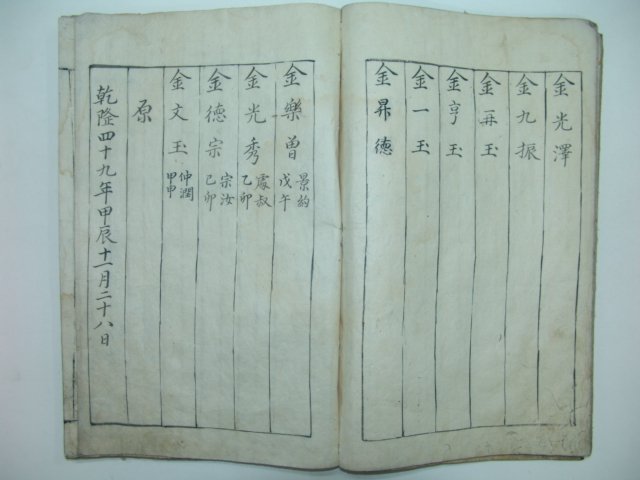 金光澤
金九振
金再玉
金亨玉
金一玉
金昇德
金樂曽 景約 戊午
金光秀 處叔 乙卯
金德宗 宗汝 己卯
金文玉 仲潤 甲申
原
乾隆四十九年甲辰十一月二十八日